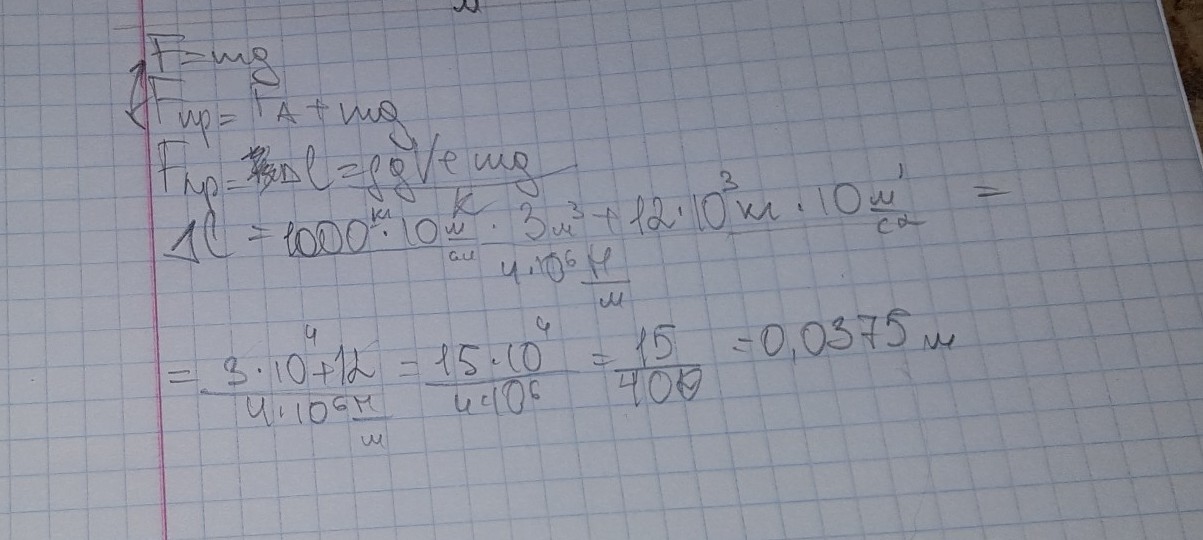 F=mg
Fпр= FA + mg
Fпр= Δl = ρgVв mg / k
Δl = 1000 кг · 10 м/с² · 3м³ + 12·10³ кг · 10 м/с² / 4·10⁶ Н/м =
= 3·10⁴+12 / 4·10⁶ Н/м = 15·10⁴ / 4·10⁶ = 15 / 400 =0,0375 м